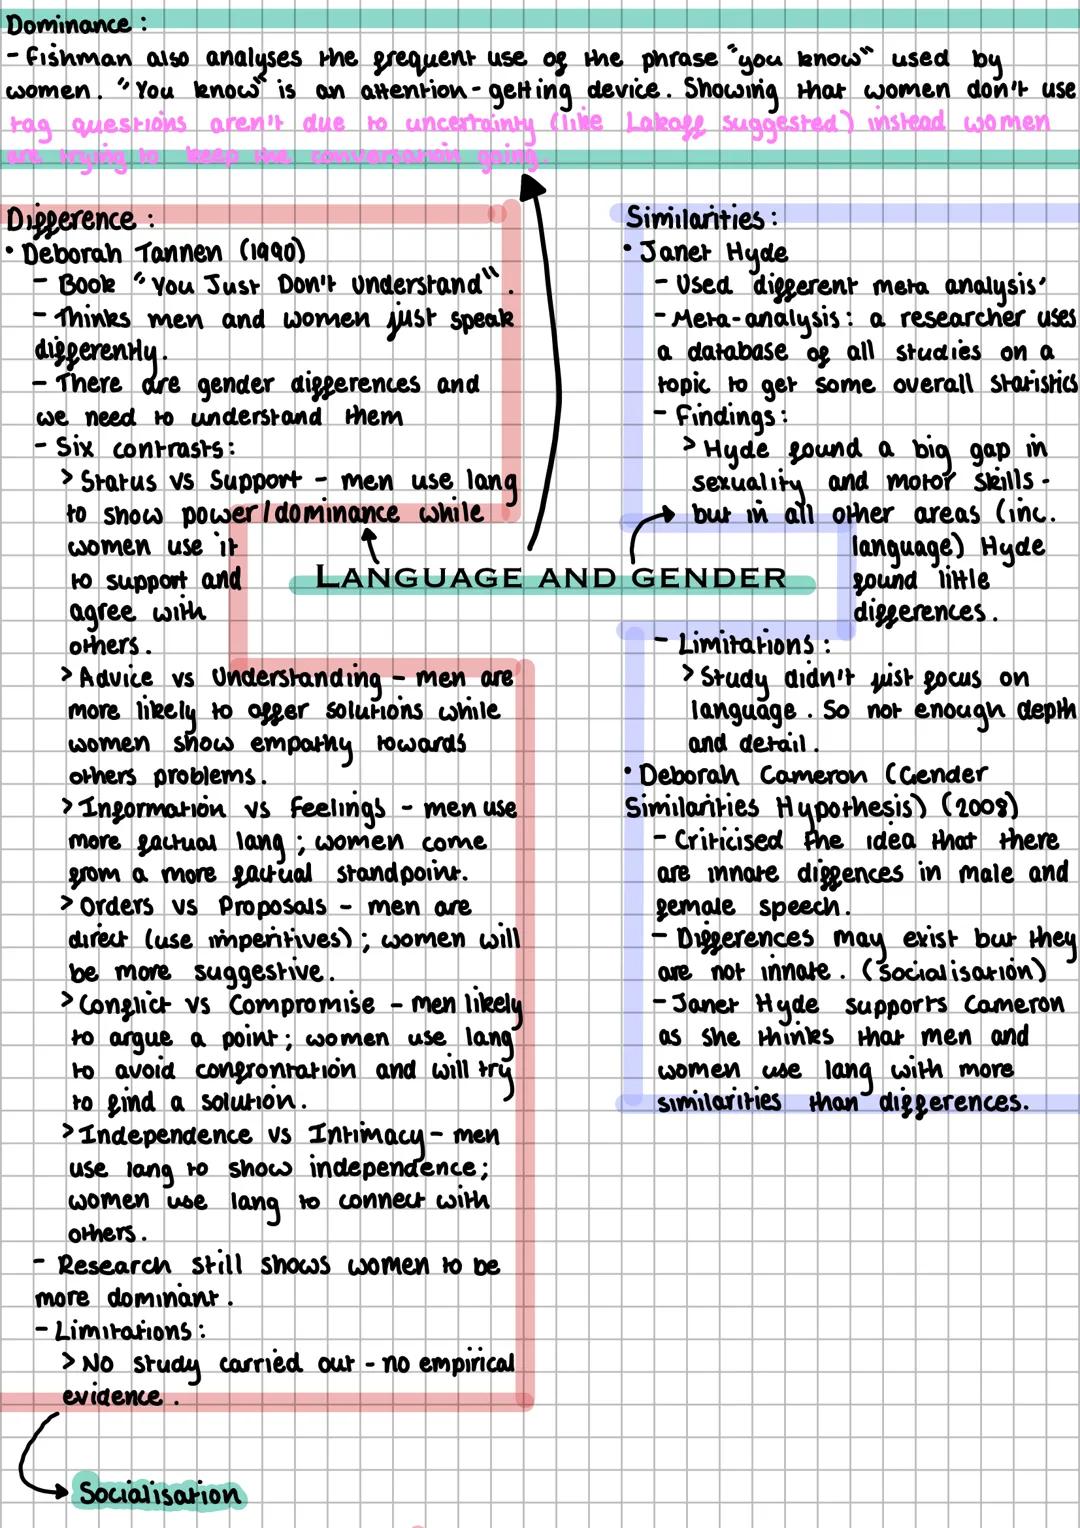 Dominance :
- Fishman also analyses the frequent use of the phrase "you know" used by
women. "You know" is an attention-getting device. Showing that women don't use
tag questions aren't due to uncertainty (like Lakoff suggested) instead women
are trying to keep the conversation going.
Difference :
• Deborah Tannen (1990)
- Book "You Just Don't Understand".
- Thinks men and women just speak
differently.
- There are gender differences and
we need to understand them
- Six contrasts:
> Status vs Support - men use lang
to show power/dominance while
women use it
to support and
agree with
others.
> Advice vs Understanding - men are
more likely to offer solutions while
women show empathy towards
others problems.
> Information vs Feelings - men use
more factual lang ; women come
from a more factual standpoint.
> Orders vs Proposals - men are
direct (use imperitives) ; women will
be more suggestive.
> Conflict vs Compromise - men likely
to argue a point ; women use lang
to avoid confrontation and will try
to find a solution.
> Independence vs Intimacy - men
use lang to show independence;
women use lang to connect with
others.
- Research still shows women to be
more dominant.
- Limitations :
> No study carried out - no empirical
evidence.
Socialisation
LANGUAGE AND GENDER
Similarities :
• Janet Hyde
- Used 'different meta analysis'
- Meta-analysis : a researcher uses
a database of all studies on a
topic to get some overall statistics
- Findings :
> Hyde found a big gap in
sexuality and motor skills -
but in all other areas (inc.
language) Hyde
found little
differences.
- Limitations :
> Study didn't just focus on
language. So not enough depth
and detail.
• Deborah Cameron (Gender
Similarities Hypothesis) (2008)
- Criticised the idea that there
are innate diffences in male and
female speech.
- Differences may exist but they
are not innate. (socialisation)
- Janet Hyde supports Cameron
as she thinks that men and
women use lang with more
similarities than differences.